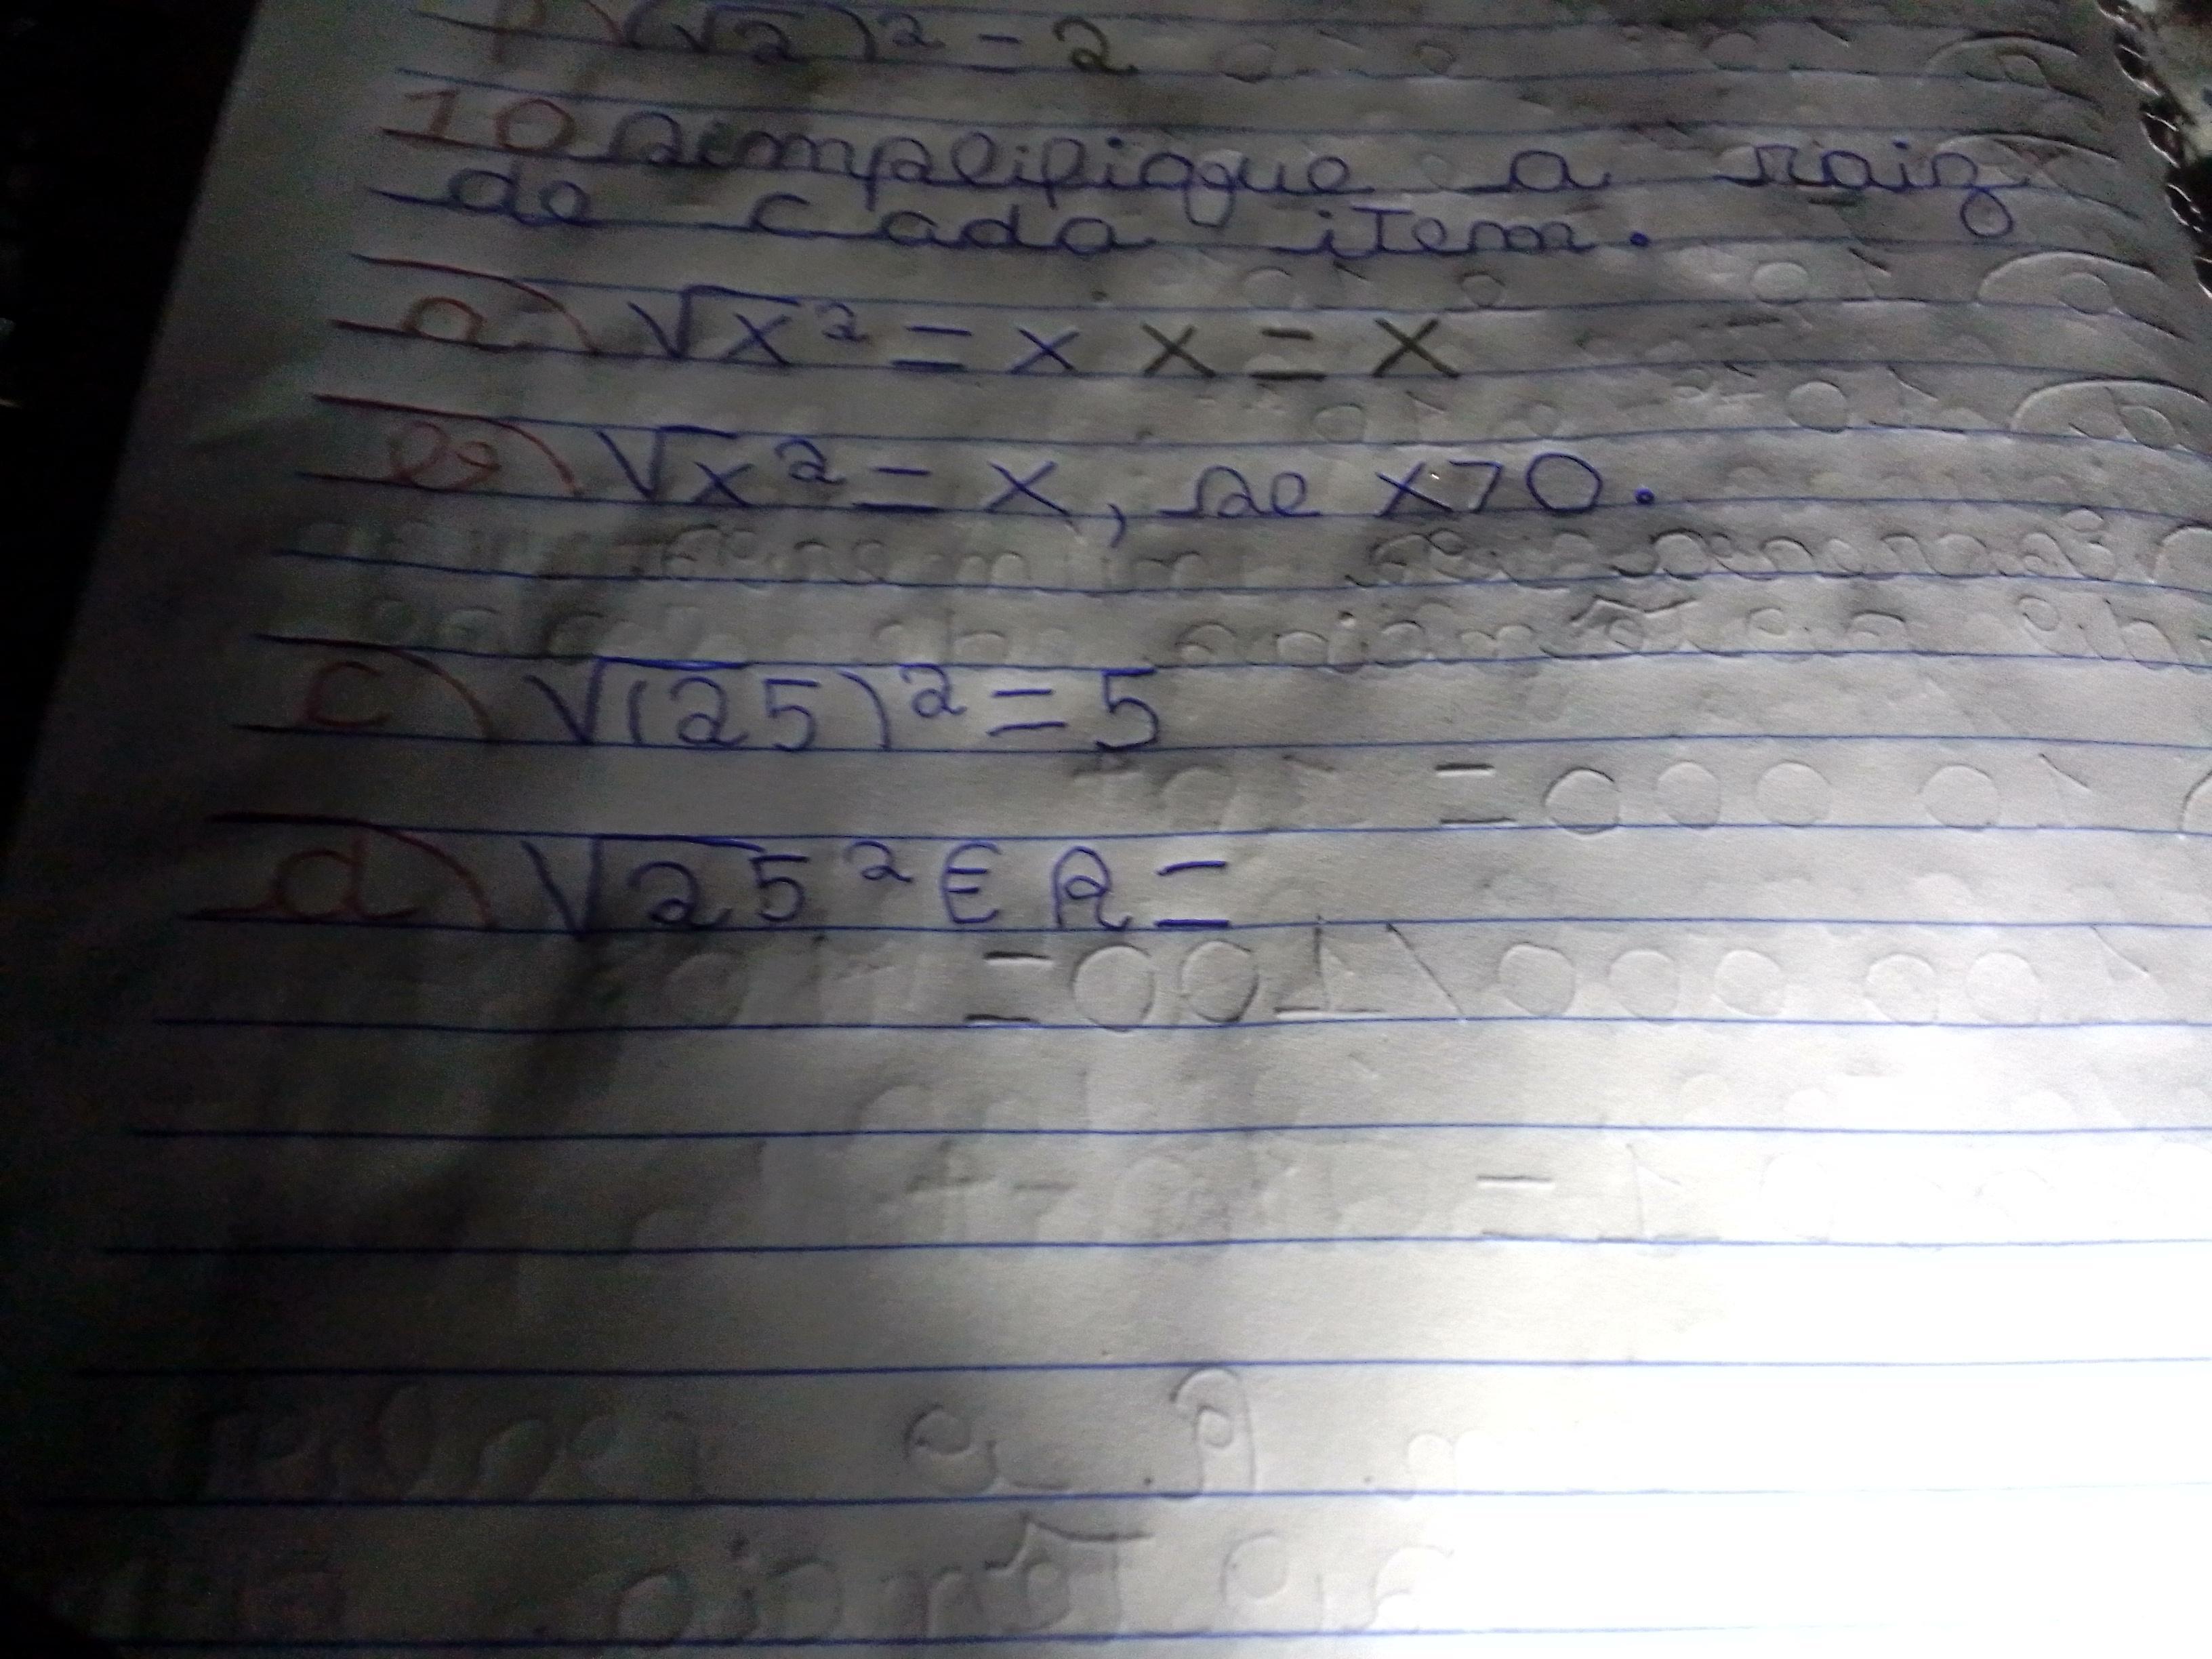 (√2)² = 2
10 Simplifique a raiz
de cada item.
a) √x² = x x = x
b) √x² = x, se x>0.
c) √(25)² = 5
d) √25² E R =